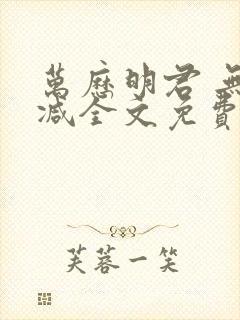 萬歷明君 無
減全文免費
芙蓉一笑